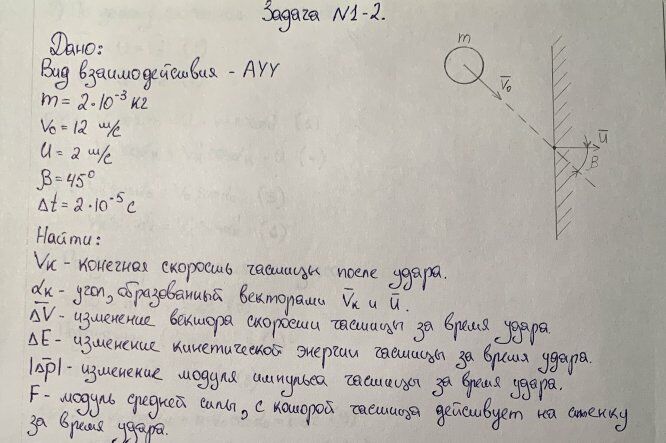 Задача N1-2.
Дано:
Вид взаимодействия - АУУ
m = 2·10⁻³ кг
V₀ = 12 м/с
U = 2 м/с
β = 45°
Δt = 2·10⁻⁵ с
m
V̅₀
u̅
β
Найти:
Vк - конечная скорость частицы после удара.
αк - угол, образованный векторами V̅к и u̅.
Δ̅V̅ - изменение вектора скорости частицы за время удара
ΔE - изменение кинетической энергии частицы за время удара.
|Δp̅| - изменение модуля импульса частицы за время удара.
F - модуль средней силы, с которой частица действует на стенку
за время удара.